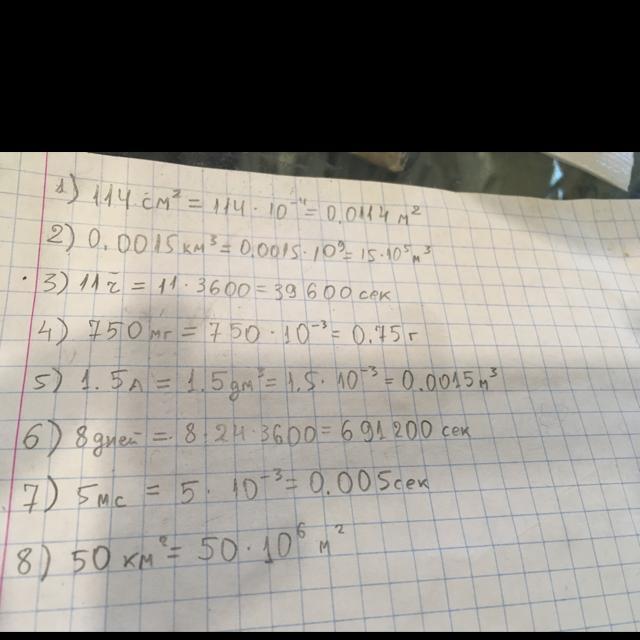 1) 114 см² = 114 · 10⁻⁴ = 0.0114 м²
2) 0.0015 км³ = 0.0015 · 10⁹ = 15 · 10⁵ м³
3) 11 ч = 11 · 3600 = 39600 сек
4) 750 мг = 750 · 10⁻³ = 0.75 г
5) 1.5 л = 1.5 дм³ = 1.5 · 10⁻³ = 0.0015 м³
6) 8 дней = 8 · 24 · 3600 = 691200 сек
7) 5 мс = 5 · 10⁻³ = 0.005 сек
8) 50 км² = 50 · 10⁶ м²